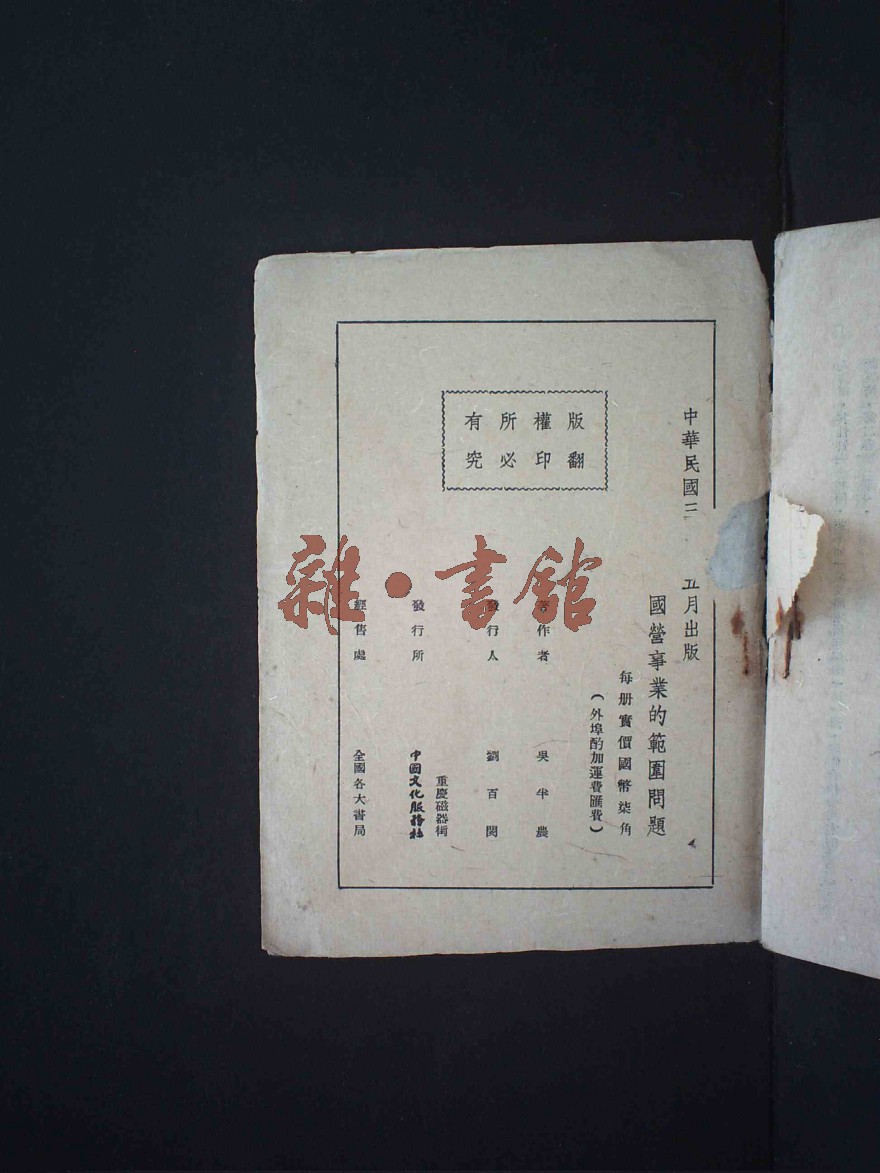 中華民國三
五月出版
國營事業的範圍問題
每册實價國幣柒角
（外埠酌加運費匯費）
版權所有
翻印必究
著作者 吳半農
發行人 劉百閔
發行所 重慶磁器街
中國文化服務社
經售處 全國各大書局
雜·書館